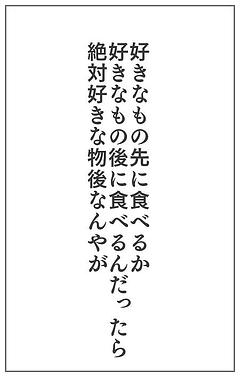 好きなもの先に食べるか
好きなもの後に食べるんだったら
絶対好きな物後なんやが